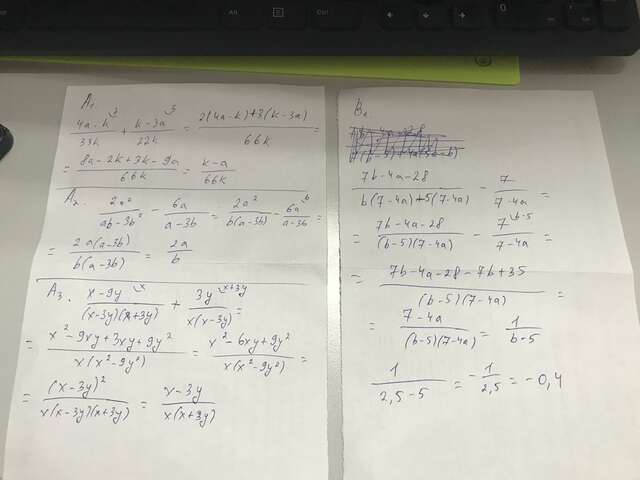 Alt
Ctrl
0
A₁.
(4a-k)²/33k + (k-3a)³/22k = (2(4a-k)+3(k-3a))/66k =
= (8a-2k+3k-9a)/66k = (k-a)/66k
A₂. 2a²/(ab-3b²) - 6a/(a-3b) = 2a²/(b(a-3b)) - 6a^b/(a-3b) =
= 2a(a-3b)/(b(a-3b)) = 2a/b
A₃. (x-9y)^x/((x-3y)(x+3y)) + 3y^(x+3y)/(x(x-3y)) =
= (x²-9xy+3xy+9y²)/(x(x²-9y²)) = (x²-6xy+9y²)/(x(x²-9y²)) =
= (x-3y)²/(x(x-3y)(x+3y)) = (x-3y)/(x(x+3y))
B₁.
(7b-4a-28)/(b(7-4a)+5(7-4a)) - 7/(7-4a) =
= (7b-4a-28)/((b-5)(7-4a)) - 7^(b-5)/(7-4a) =
= (7b-4a-28-7b+35)/((b-5)(7-4a)) =
= (7-4a)/((b-5)(7-4a)) = 1/(b-5)
1/(2,5-5) = -1/2,5 = -0,4